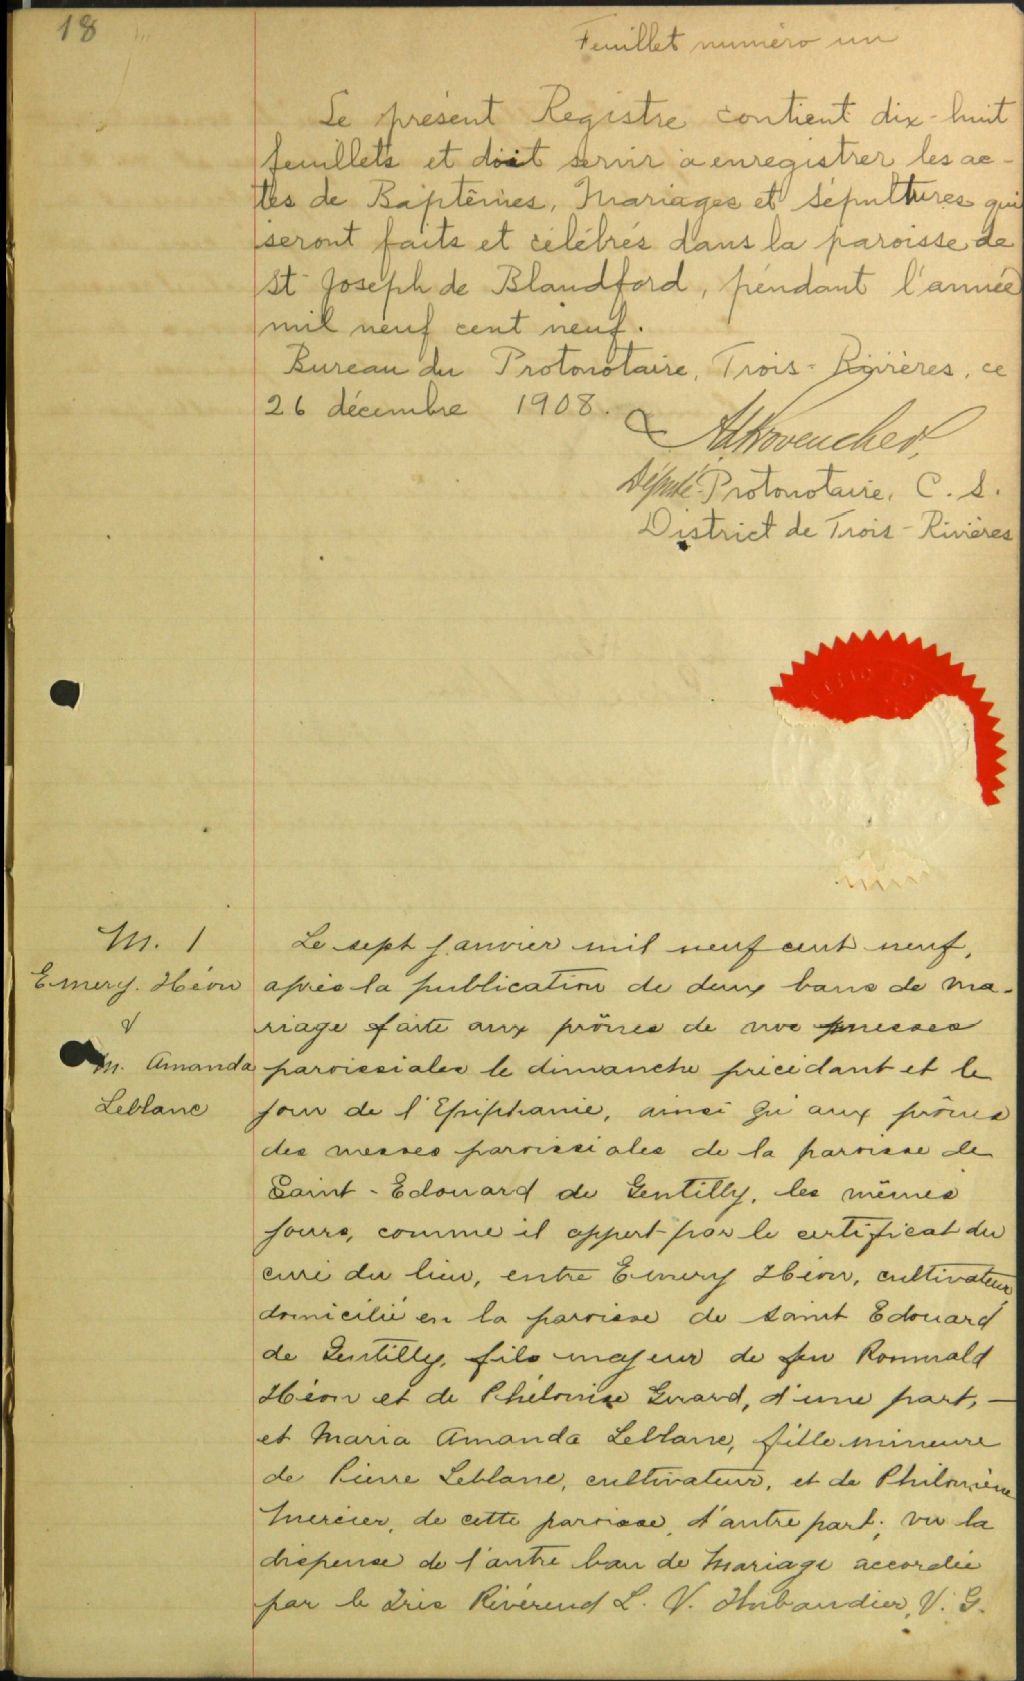 18
Feuillet numéro un
Le présent Registre contient dix-huit
feuillets et doit servir à enregistrer les ac-
tes de Baptêmes, Mariages et Sépultures qui
seront faits et célébrés dans la paroisse de
St Joseph de Blandford, pendant l'année
mil neuf cent neuf.
Bureau du Protonotaire, Trois-Rivières, ce
26 décembre 1908.
Député-Protonotaire, C. S.
District de Trois-Rivières
M. 1
Emery Héon
&
M. Amanda
Leblanc
Le sept janvier mil neuf cent neuf,
après la publication de deux bans de ma-
riage faite aux prônes de nos messes
paroissiales le dimanche précédant et le
jour de l'Epiphanie, ainsi qu'aux prônes
des messes paroissiales de la paroisse de
Saint-Edouard de Gentilly, les mêmes
jours, comme il appert par le certificat du
curé du lieu, entre Emery Héon, cultivateur,
domicilié en la paroisse de saint Edouard
de Gentilly, fils majeur de feu Romuald
Héon et de Philonise Girard, d'une part, —
et Maria Amanda Leblanc, fille mineure
de Pierre Leblanc, cultivateur, et de Philomène
Mercier, de cette paroisse, d'autre part; vu la
dispense de l'autre ban de Mariage accordée
par le Très Révérend L. V. V. G.